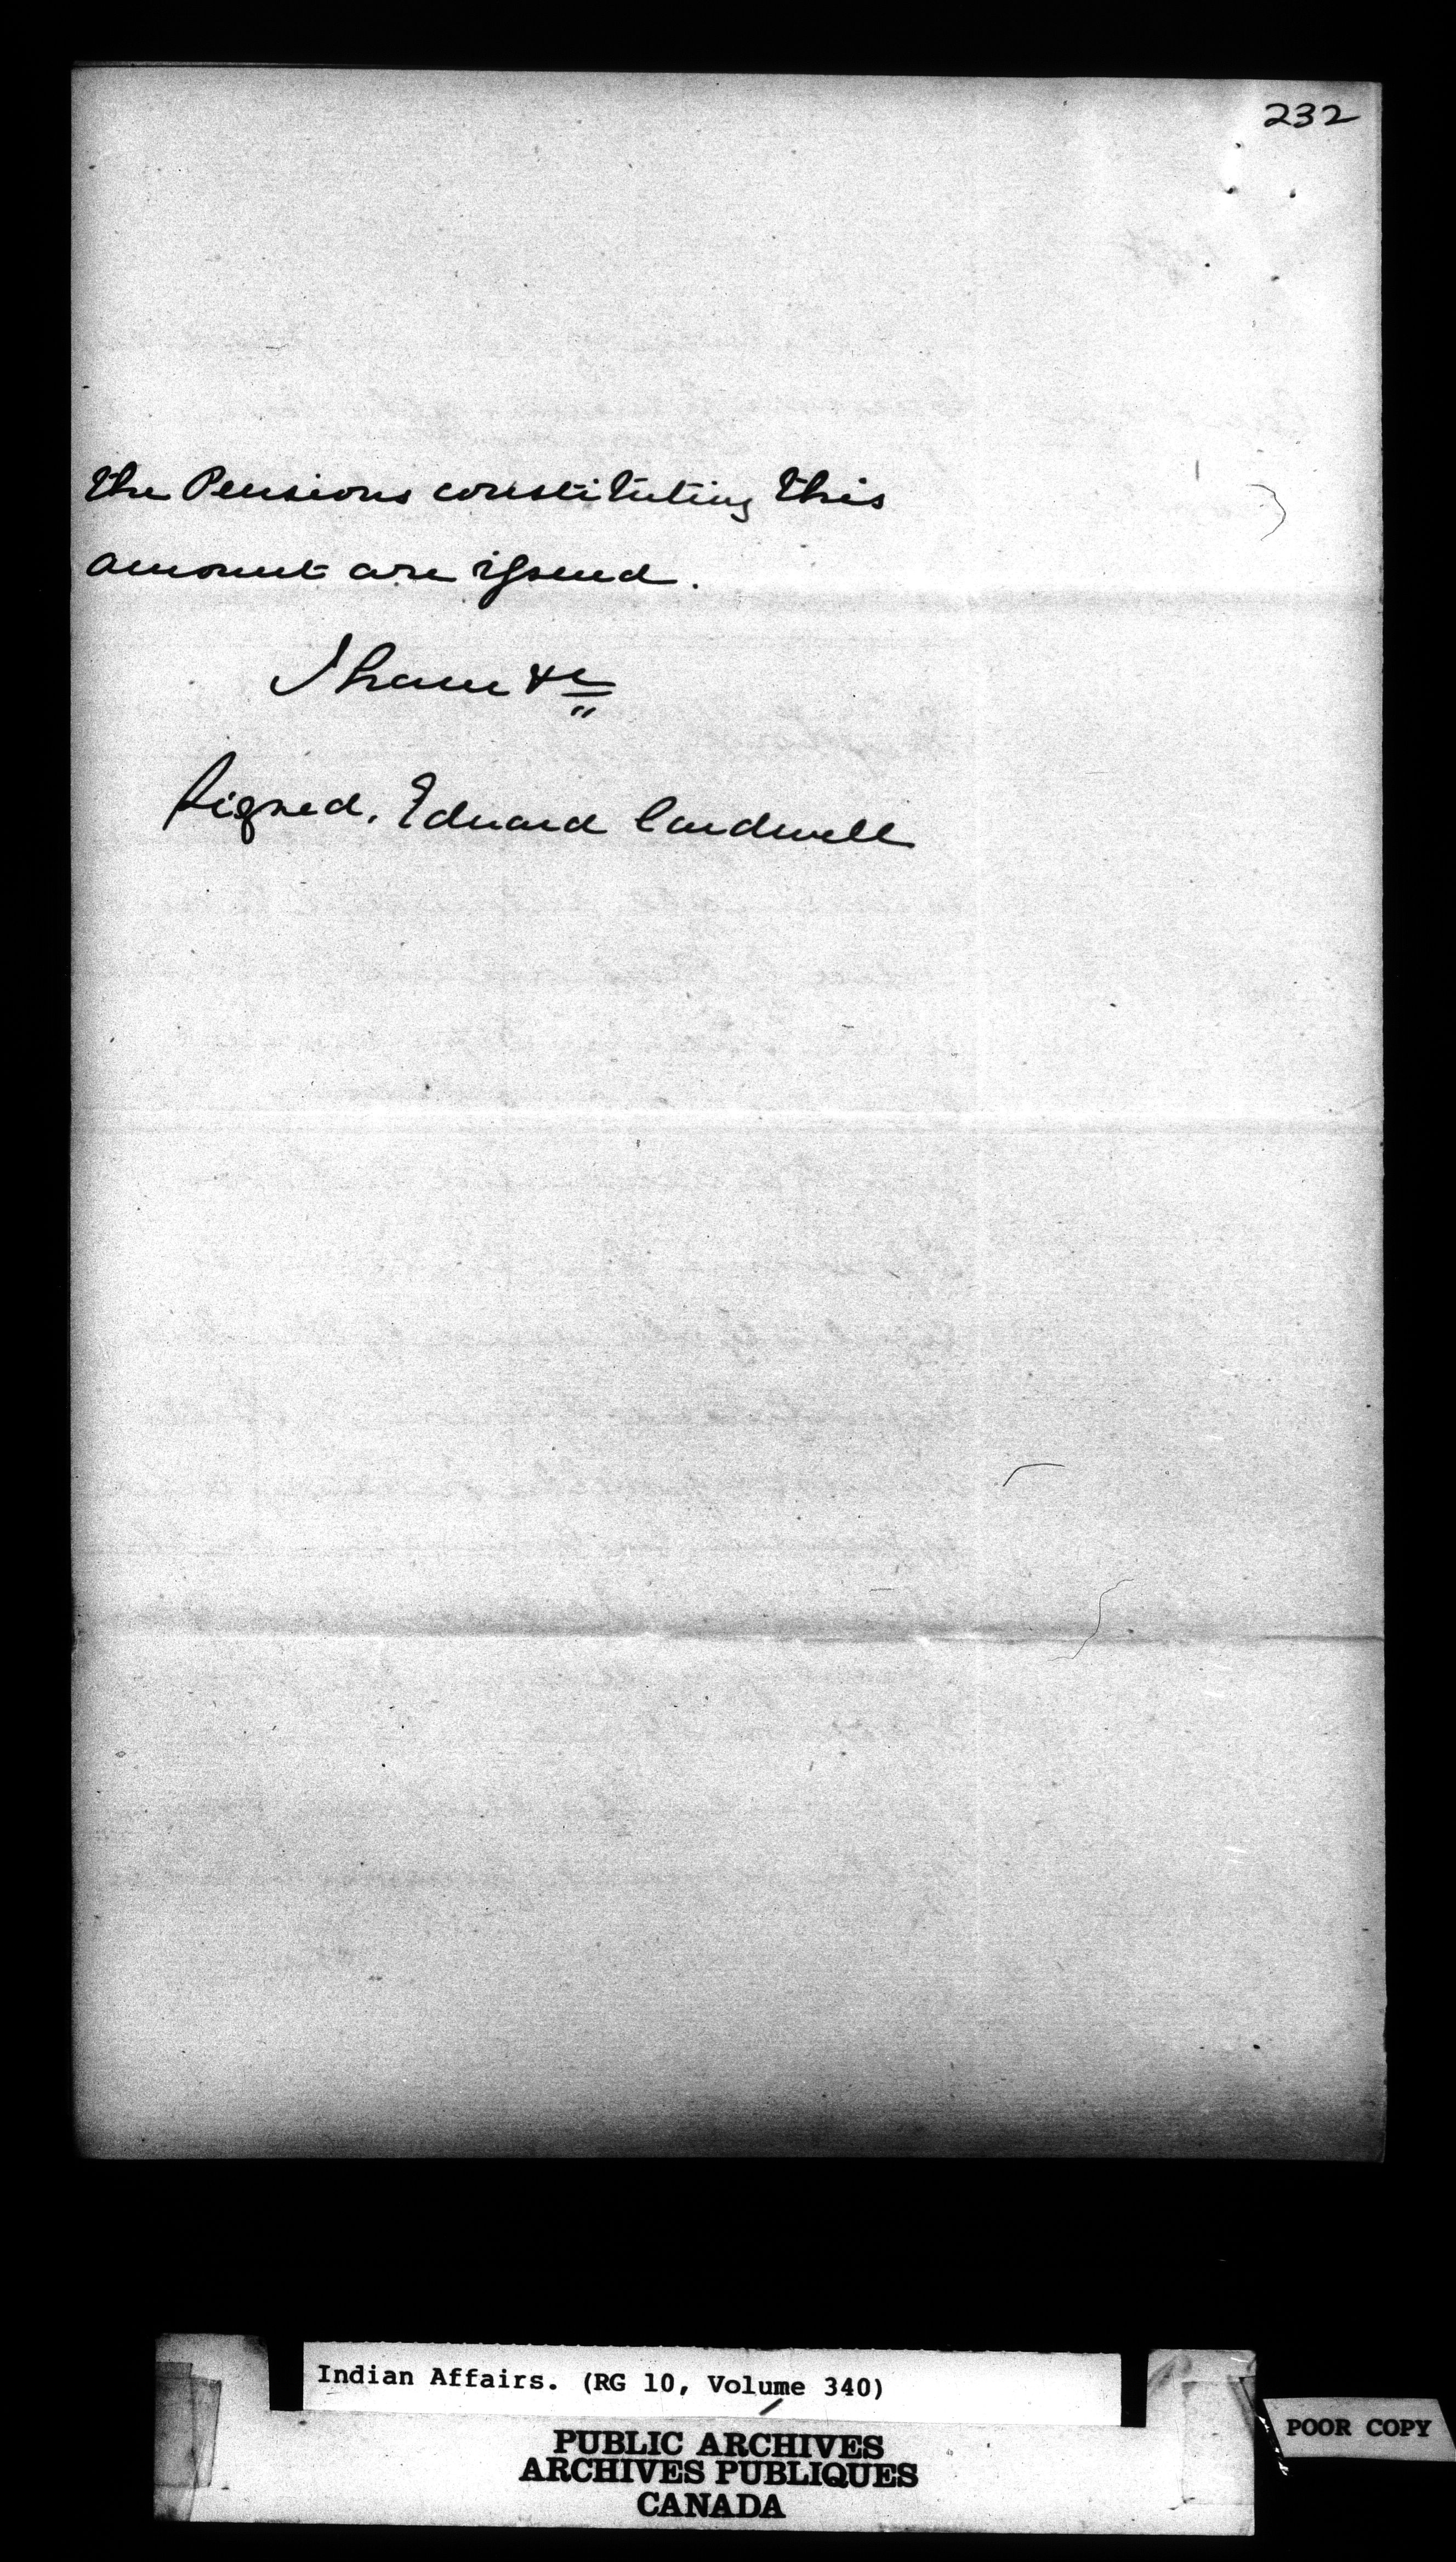 232
the Pensions constituting this
amount are issued.
I have &c
Signed, Edward Cardwell
Indian Affairs. (RG 10, Volume 340)
PUBLIC ARCHIVES
ARCHIVES PUBLIQUES
CANADA
POOR COPY